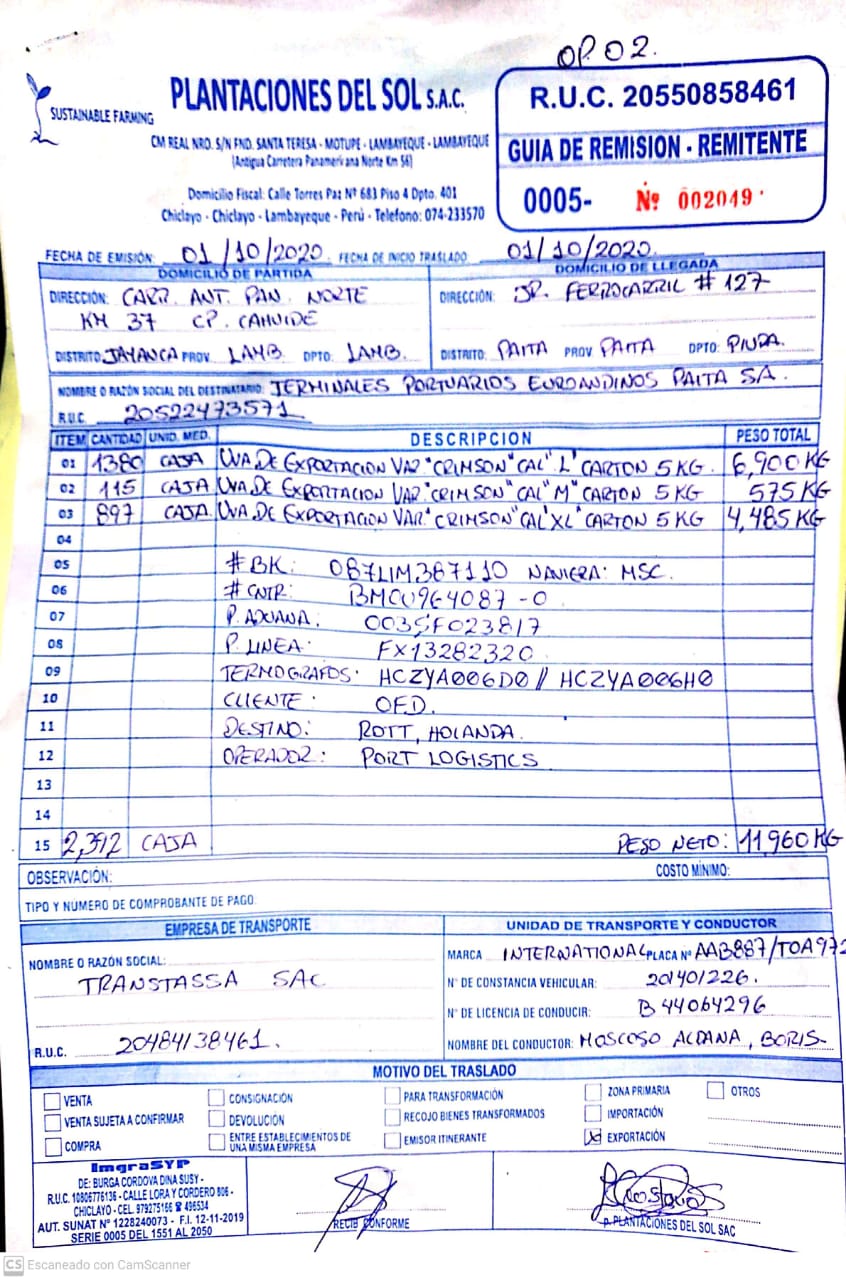 OP. 02.
SUSTAINABLE FARMING
PLANTACIONES DEL SOL S.A.C.
CM REAL NRO. S/N FND. SANTA TERESA - MOTUPE - LAMBAYEQUE - LAMBAYEQUE
(Antigua Carretera Panamericana Norte Km 56)
Domicilio Fiscal: Calle Torres Paz Nº 683 Piso 4 Dpto. 401
Chiclayo - Chiclayo - Lambayeque - Perú - Telefono: 074-233570
R.U.C. 20550858461
GUIA DE REMISION - REMITENTE
0005- Nº 002049
FECHA DE EMISIÓN: 01/10/2020 FECHA DE INICIO TRASLADO 01/10/2020.
DOMICILIO DE PARTIDA
DIRECCIÓN: CARR. ANT. PAN. NORTE
KM 37 CP. CAHUIDE
DISTRITO: JAYANCA PROV. LAMB. DPTO: LAMB.
DOMICILIO DE LLEGADA
DIRECCIÓN: JR. FERROCARRIL # 127
DISTRITO: PAITA PROV PAITA DPTO: PIURA.
NOMBRE O RAZÓN SOCIAL DEL DESTINATARIO: TERMINALES PORTUARIOS EUROANDINOS PAITA SA.
R.U.C. 20522473571
ITEM CANTIDAD UNID. MED. DESCRIPCION PESO TOTAL
01 1380 CAJA UVA DE EXPORTACION VAR. "CRIMSON" CAL "L" CARTON 5 KG. 6,900 KG
02 115 CAJA UVA DE EXPORTACION VAR. "CRIMSON" CAL "M" CARTON 5 KG 575 KG
03 897 CAJA UVA DE EXPORTACION VAR. "CRIMSON" CAL "XL" CARTON 5 KG 4,485 KG
04
05 # BK: 087LIM387110 NAVIERA: MSC.
06 # CNTR: BMOU964087-0
07 P. ADUANA: 003SF023817
08 P. LINEA: FX13282320
09 TERMOGRAFOS: HCZYA006D0 // HCZYA006H0
10 CLIENTE: OFD.
11 DESTINO: ROTT, HOLANDA.
12 OPERADOR: PORT LOGISTICS
13
14
15 2,392 CAJA PESO NETO: 11,960 KG
OBSERVACIÓN: COSTO MÍNIMO:
TIPO Y NUMERO DE COMPROBANTE DE PAGO:
EMPRESA DE TRANSPORTE
NOMBRE O RAZÓN SOCIAL:
TRANSTASSA SAC
R.U.C. 20484138461.
UNIDAD DE TRANSPORTE Y CONDUCTOR
MARCA INTERNATIONAL PLACA Nº AAB887/TOA972
Nº DE CONSTANCIA VEHICULAR: 201401226.
Nº DE LICENCIA DE CONDUCIR: B44064296
NOMBRE DEL CONDUCTOR: MOSCOSO ALDANA, BORIS-
MOTIVO DEL TRASLADO
VENTA CONSIGNACIÓN PARA TRANSFORMACIÓN ZONA PRIMARIA OTROS
VENTA SUJETA A CONFIRMAR DEVOLUCIÓN RECOJO BIENES TRANSFORMADOS IMPORTACIÓN
COMPRA ENTRE ESTABLECIMIENTOS DE UNA MISMA EMPRESA EMISOR ITINERANTE X EXPORTACIÓN
ImgraSYP
DE: BURGA CORDOVA DINA SUSY -
R.U.C. 10806776136 - CALLE LORA Y CORDERO 806 -
CHICLAYO - CEL. 979275166 ☎ 496534
AUT. SUNAT Nº 1228240073 - F.I. 12-11-2019
SERIE 0005 DEL 1551 AL 2050
RECIBI CONFORME
P. PLANTACIONES DEL SOL SAC
CS Escaneado con CamScanner